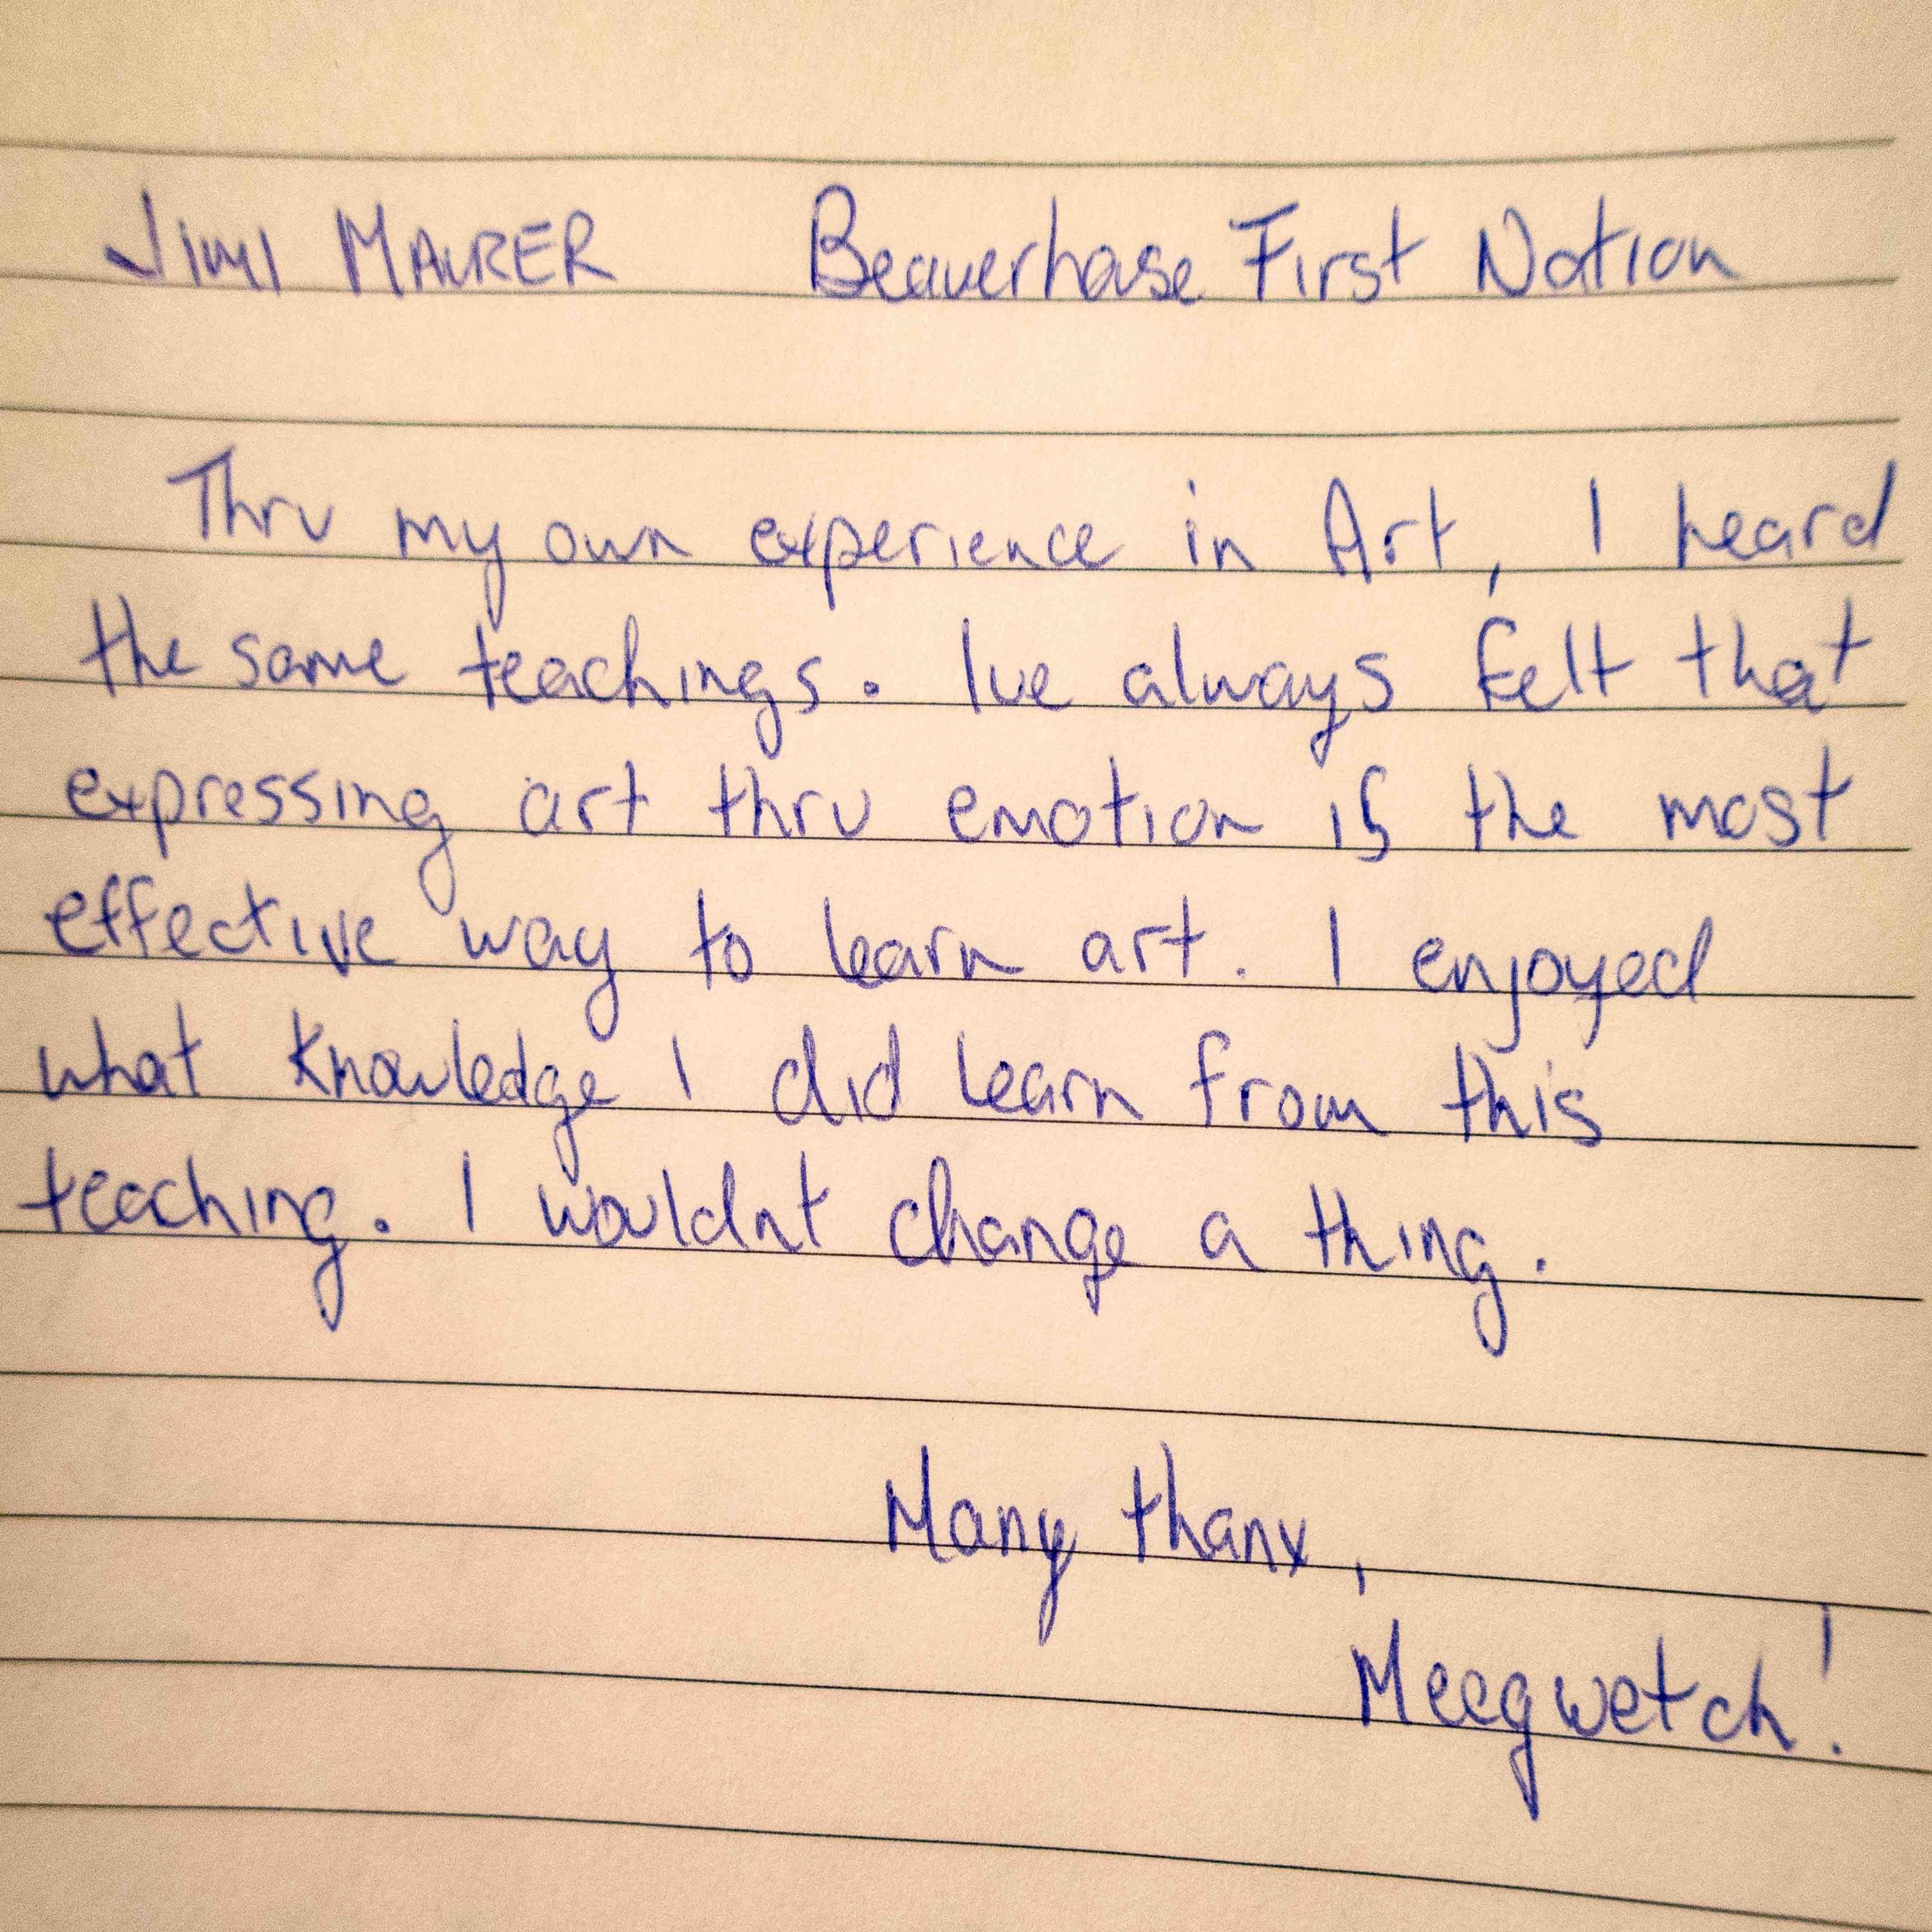 Jimi MAURER Beaverhouse First Nation
Thru my own experience in Art, I heard
the same teachings. Ive always felt that
expressing art thru emotion is the most
effective way to learn art. I enjoyed
what knowledge I did learn from this
teaching. I wouldnt change a thing.
Many thanx,
Meegwetch!